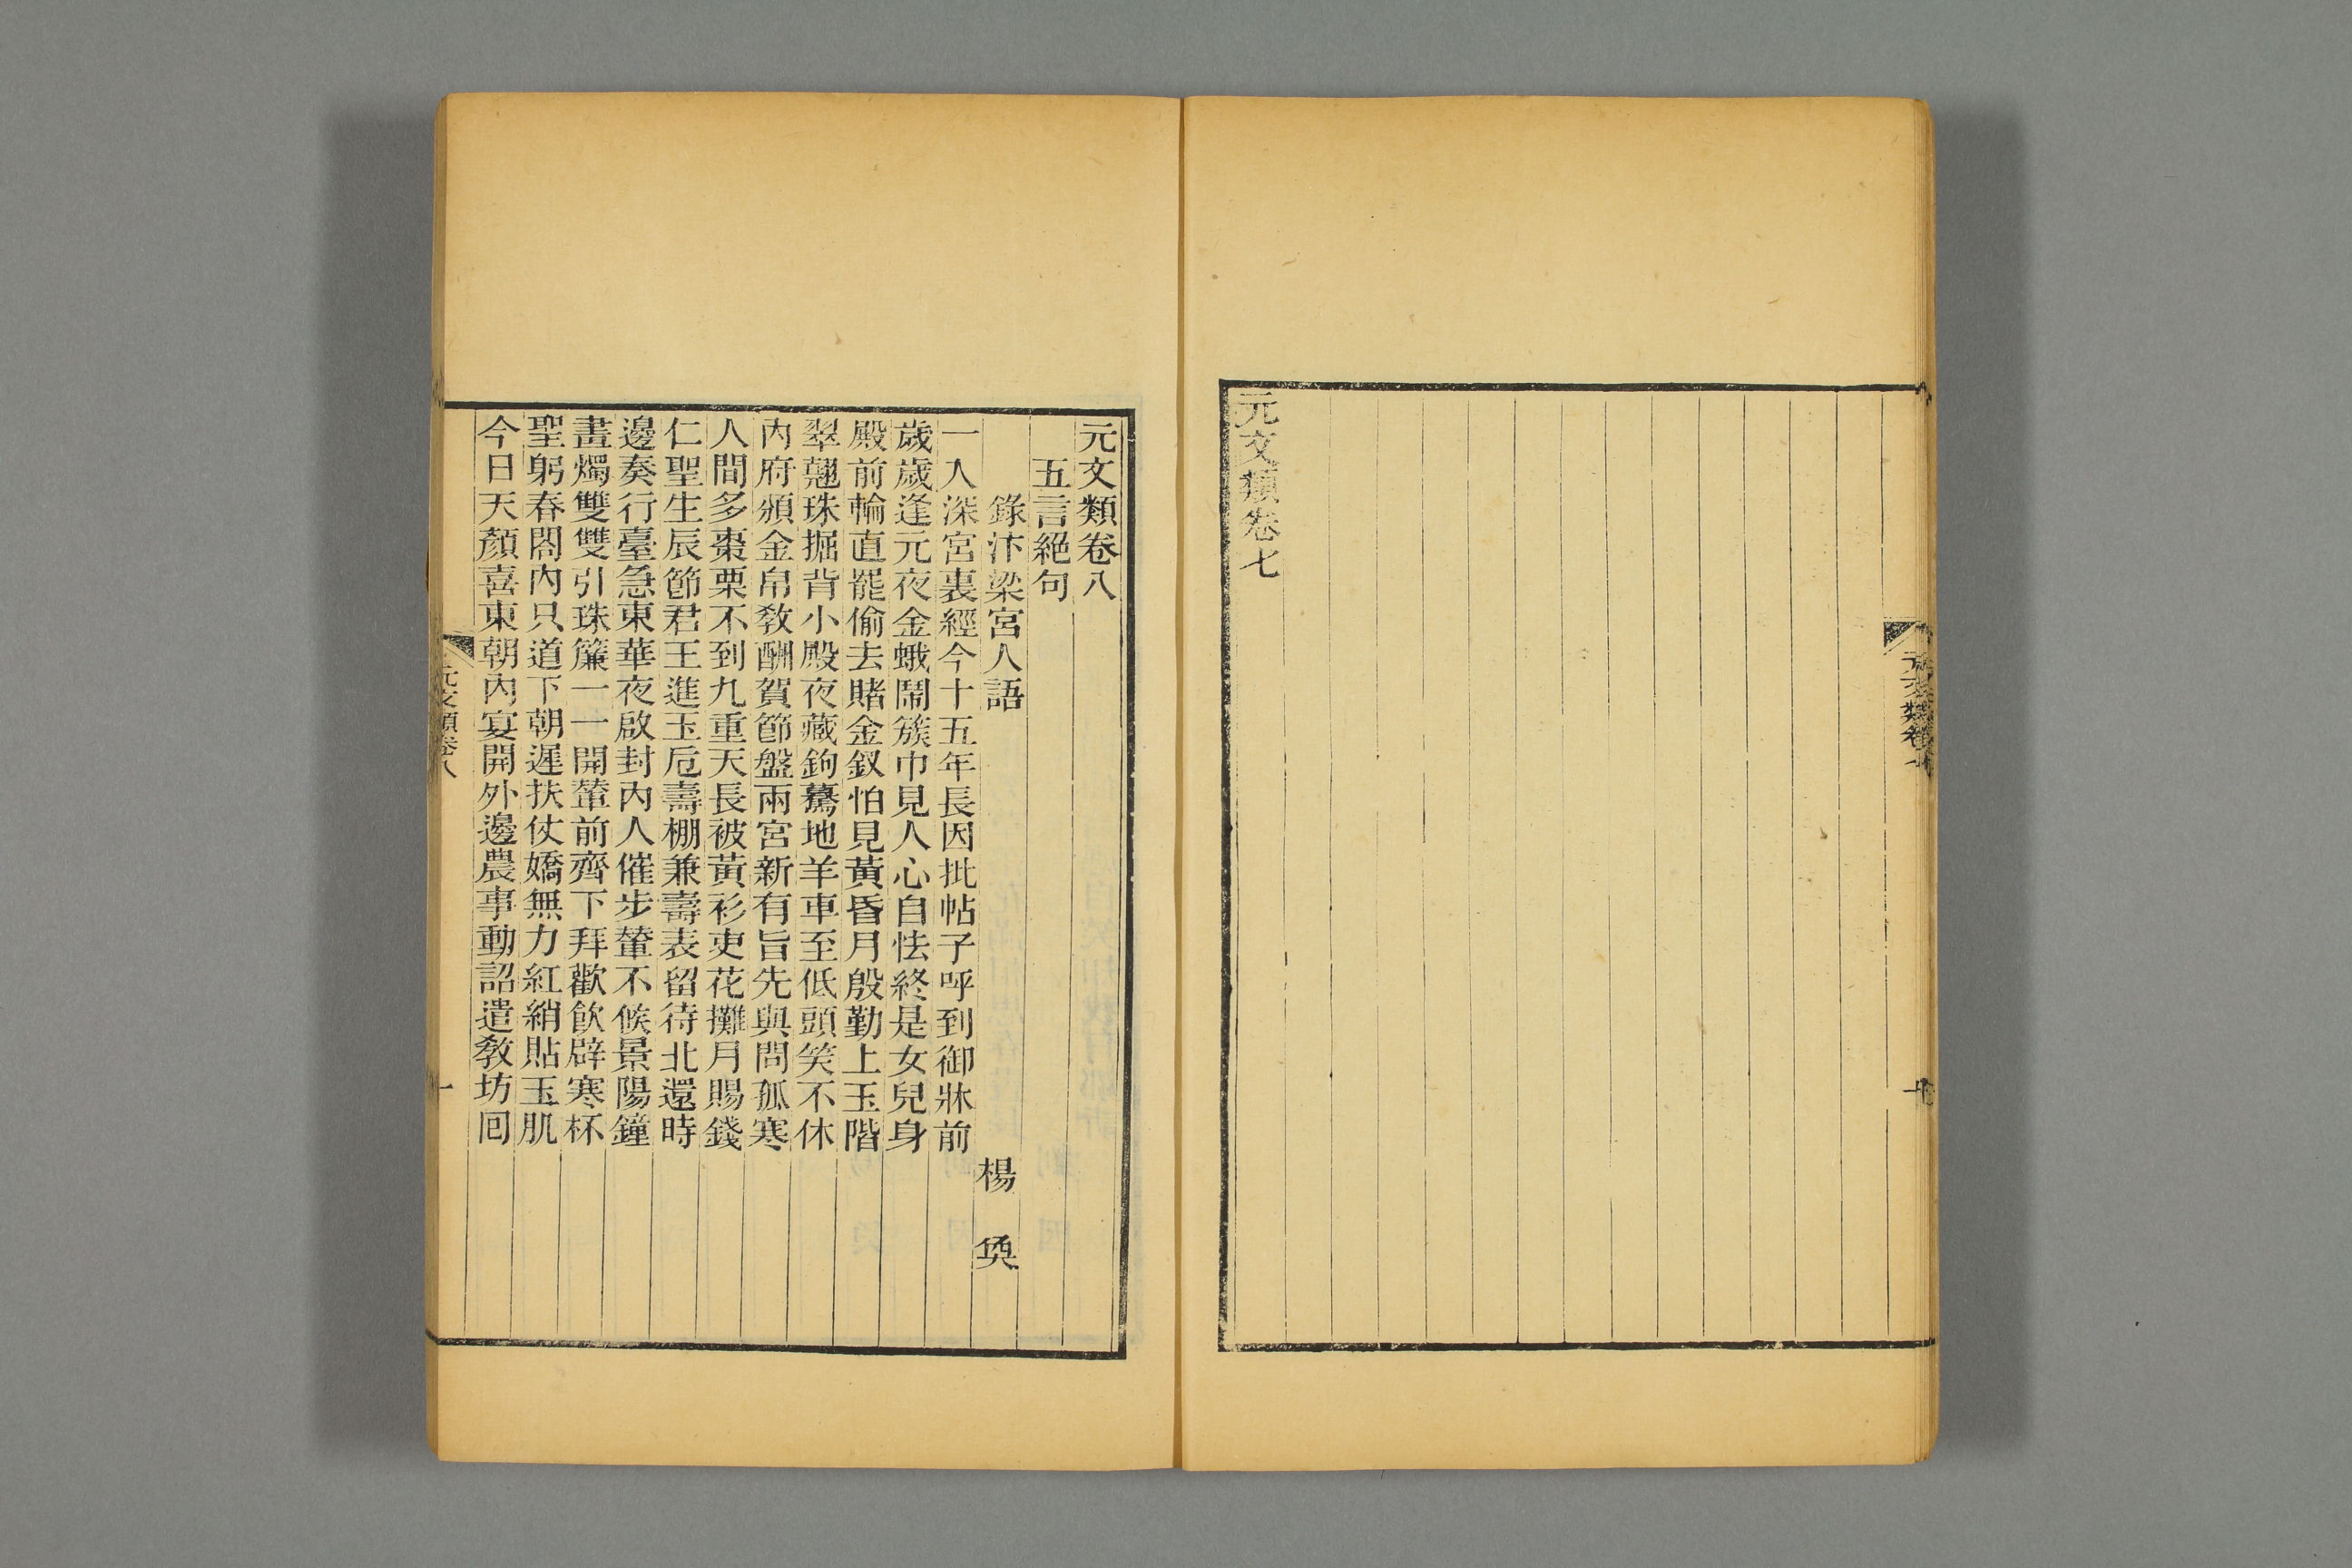 元文類卷七
元文類卷八
五言絕句
錄汴梁宮人語
楊奐
一入深宮裏經今十五年長因批帖子呼到御牀前
歲歲逢元夜金蛾鬧簇巾見人心自怯終是女兒身
殿前輪直罷偷去賭金釵怕見黃昏月殷勤上玉階
翠翹珠掘背小殿夜藏鉤驀地羊車至低頭笑不休
內府頒金帛敎酬賀節盤兩宮新有旨先與問孤寒
人間多棗栗不到九重天長被黃衫吏花攤月賜錢
仁聖生辰節君王進玉卮壽棚兼壽表留待北還時
邊奏行臺急東華夜啟封內人催步輦不候景陽鐘
畫燭雙雙引珠簾一一開輦前齊下拜歡飲辟寒杯
聖躬春閣內只道下朝遲扶仗嬌無力紅綃貼玉肌
今日天顏喜東朝內宴開外邊農事動詔遣敎坊囘
元文類卷八
一